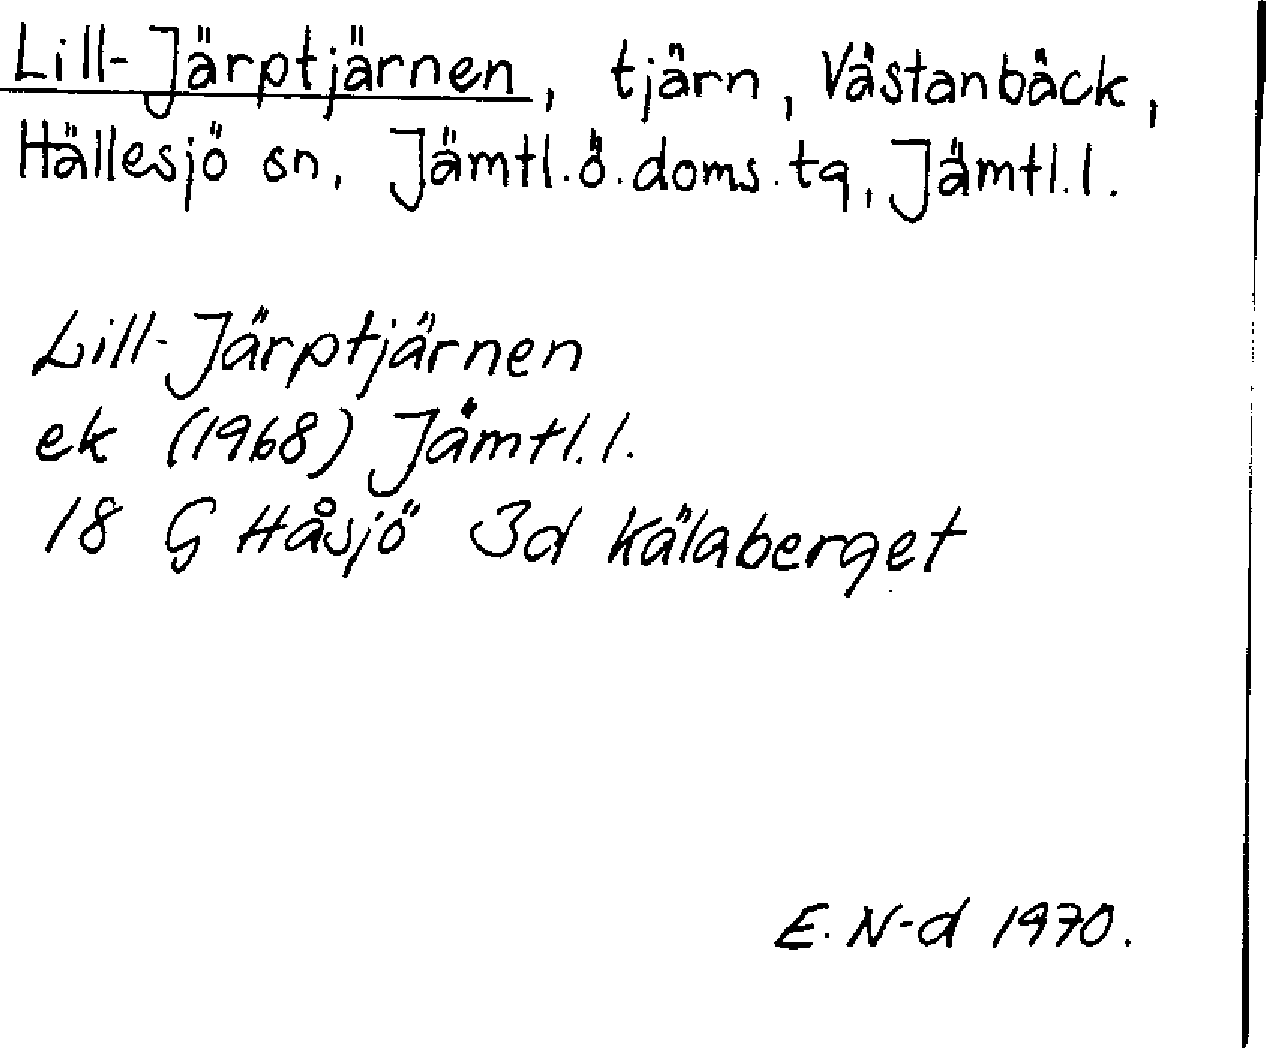 Lill-Järptjärnen, tjärn, Västanbäck,
Hällesjö sn, Jämtl.ö.doms.tg, Jämtl.l.
Lill-Järptjärnen
ek (1968) Jämtl.l.
18 G Håsjö 3d Kälaberget
E. N-d 1970.